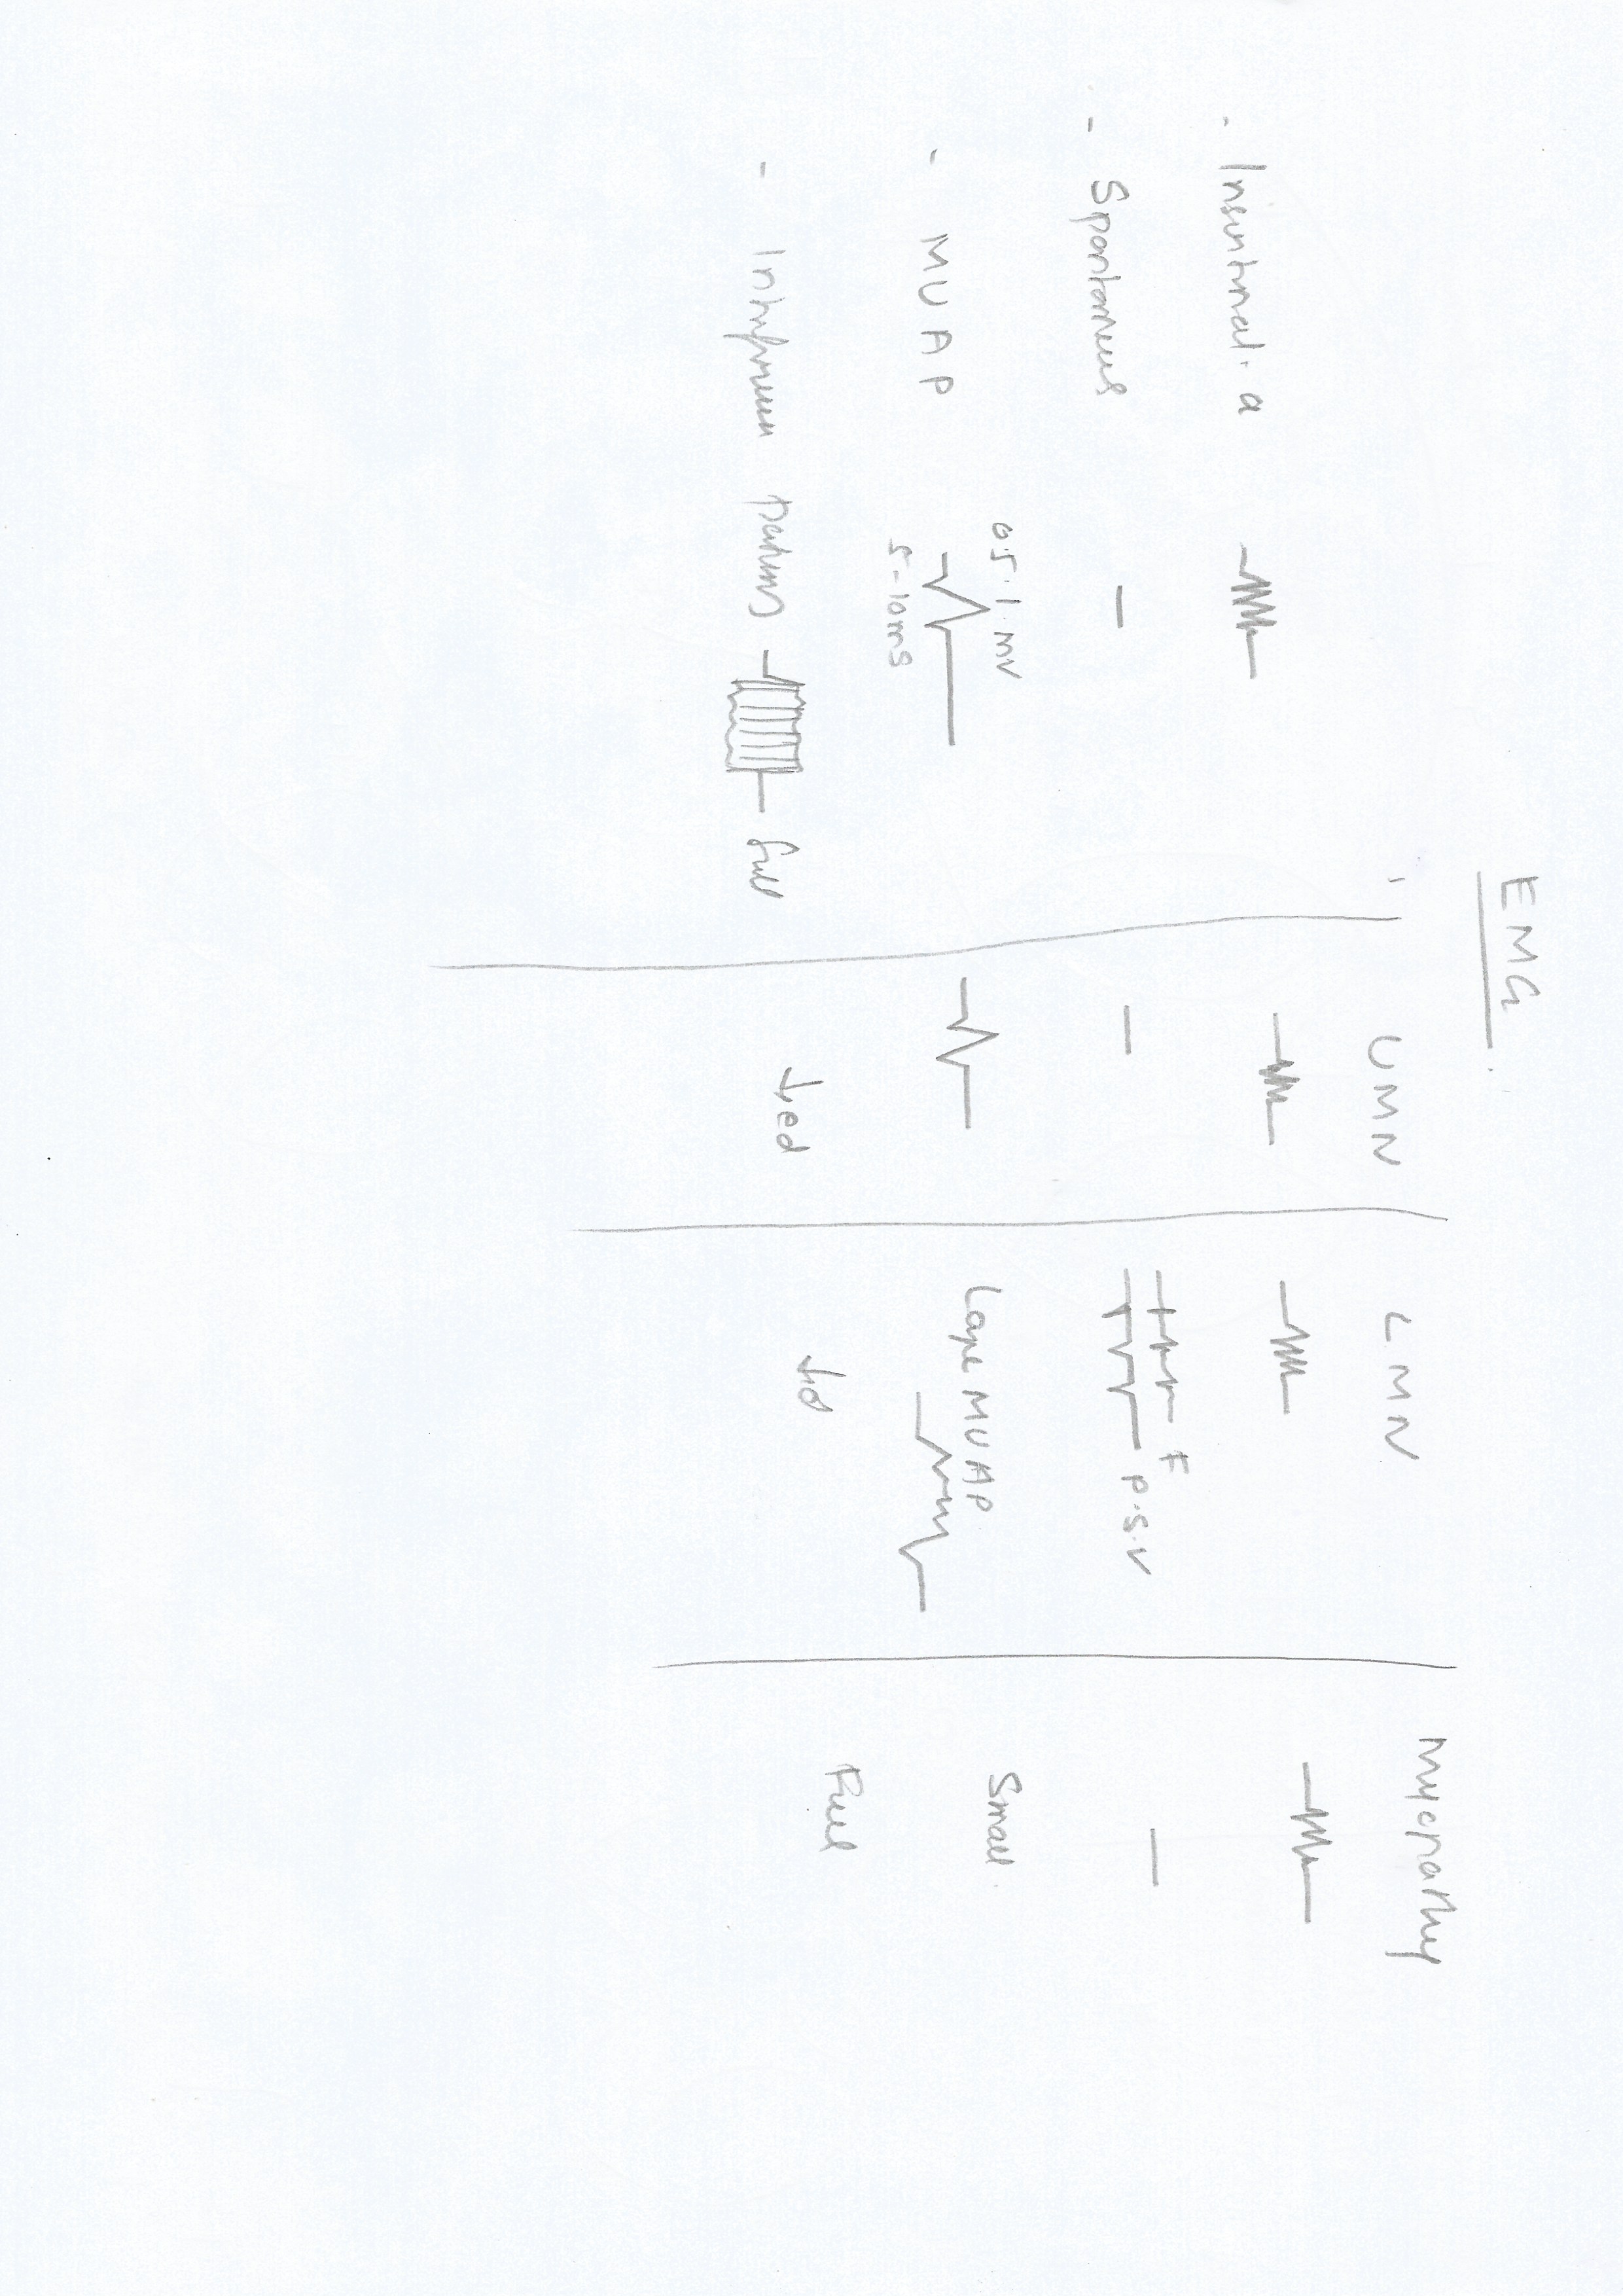 EMG
UMN
LMN
Myopathy
- Insertional. a
- Spontaneous
F
P.S.V
- MUAP
0.5.1.mV
5-10ms
Large MUAP
Small
- Interference patterns full
↓ed
↓d
Full